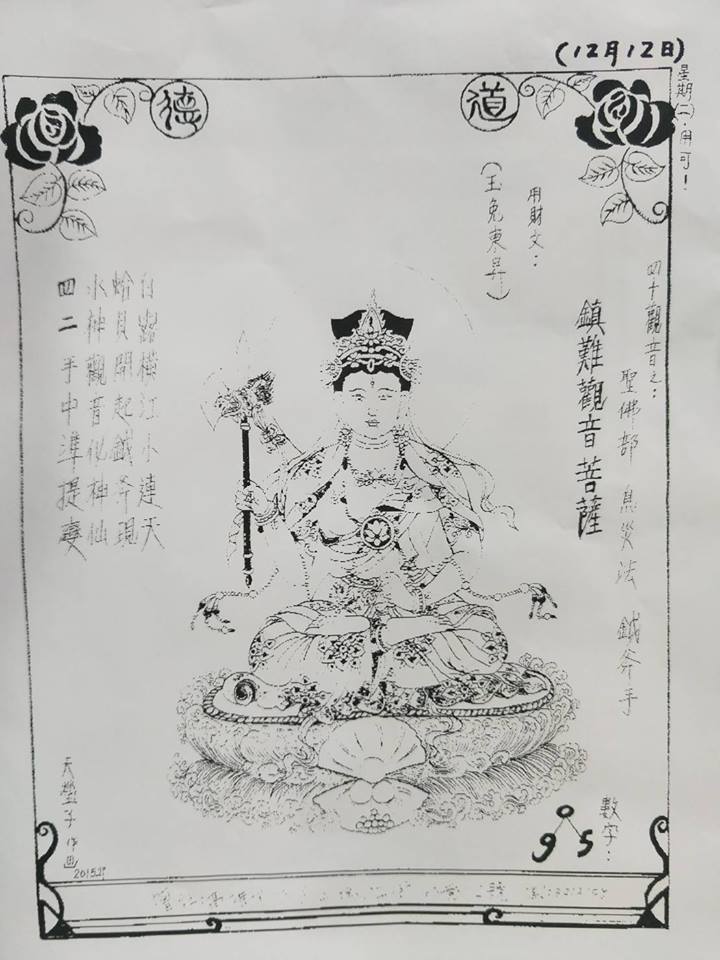 (12月12日)
星期(二)用可!
道
德
四十觀音之:
聖佛部 息災法 鉞斧手
鎮難觀音菩薩
用財文:
(玉兔東昇)
白露橫江水連天
蛤貝開起鉞斧現
水神觀音化神仙
四二手中準提變
數字:
0
9 5
作画